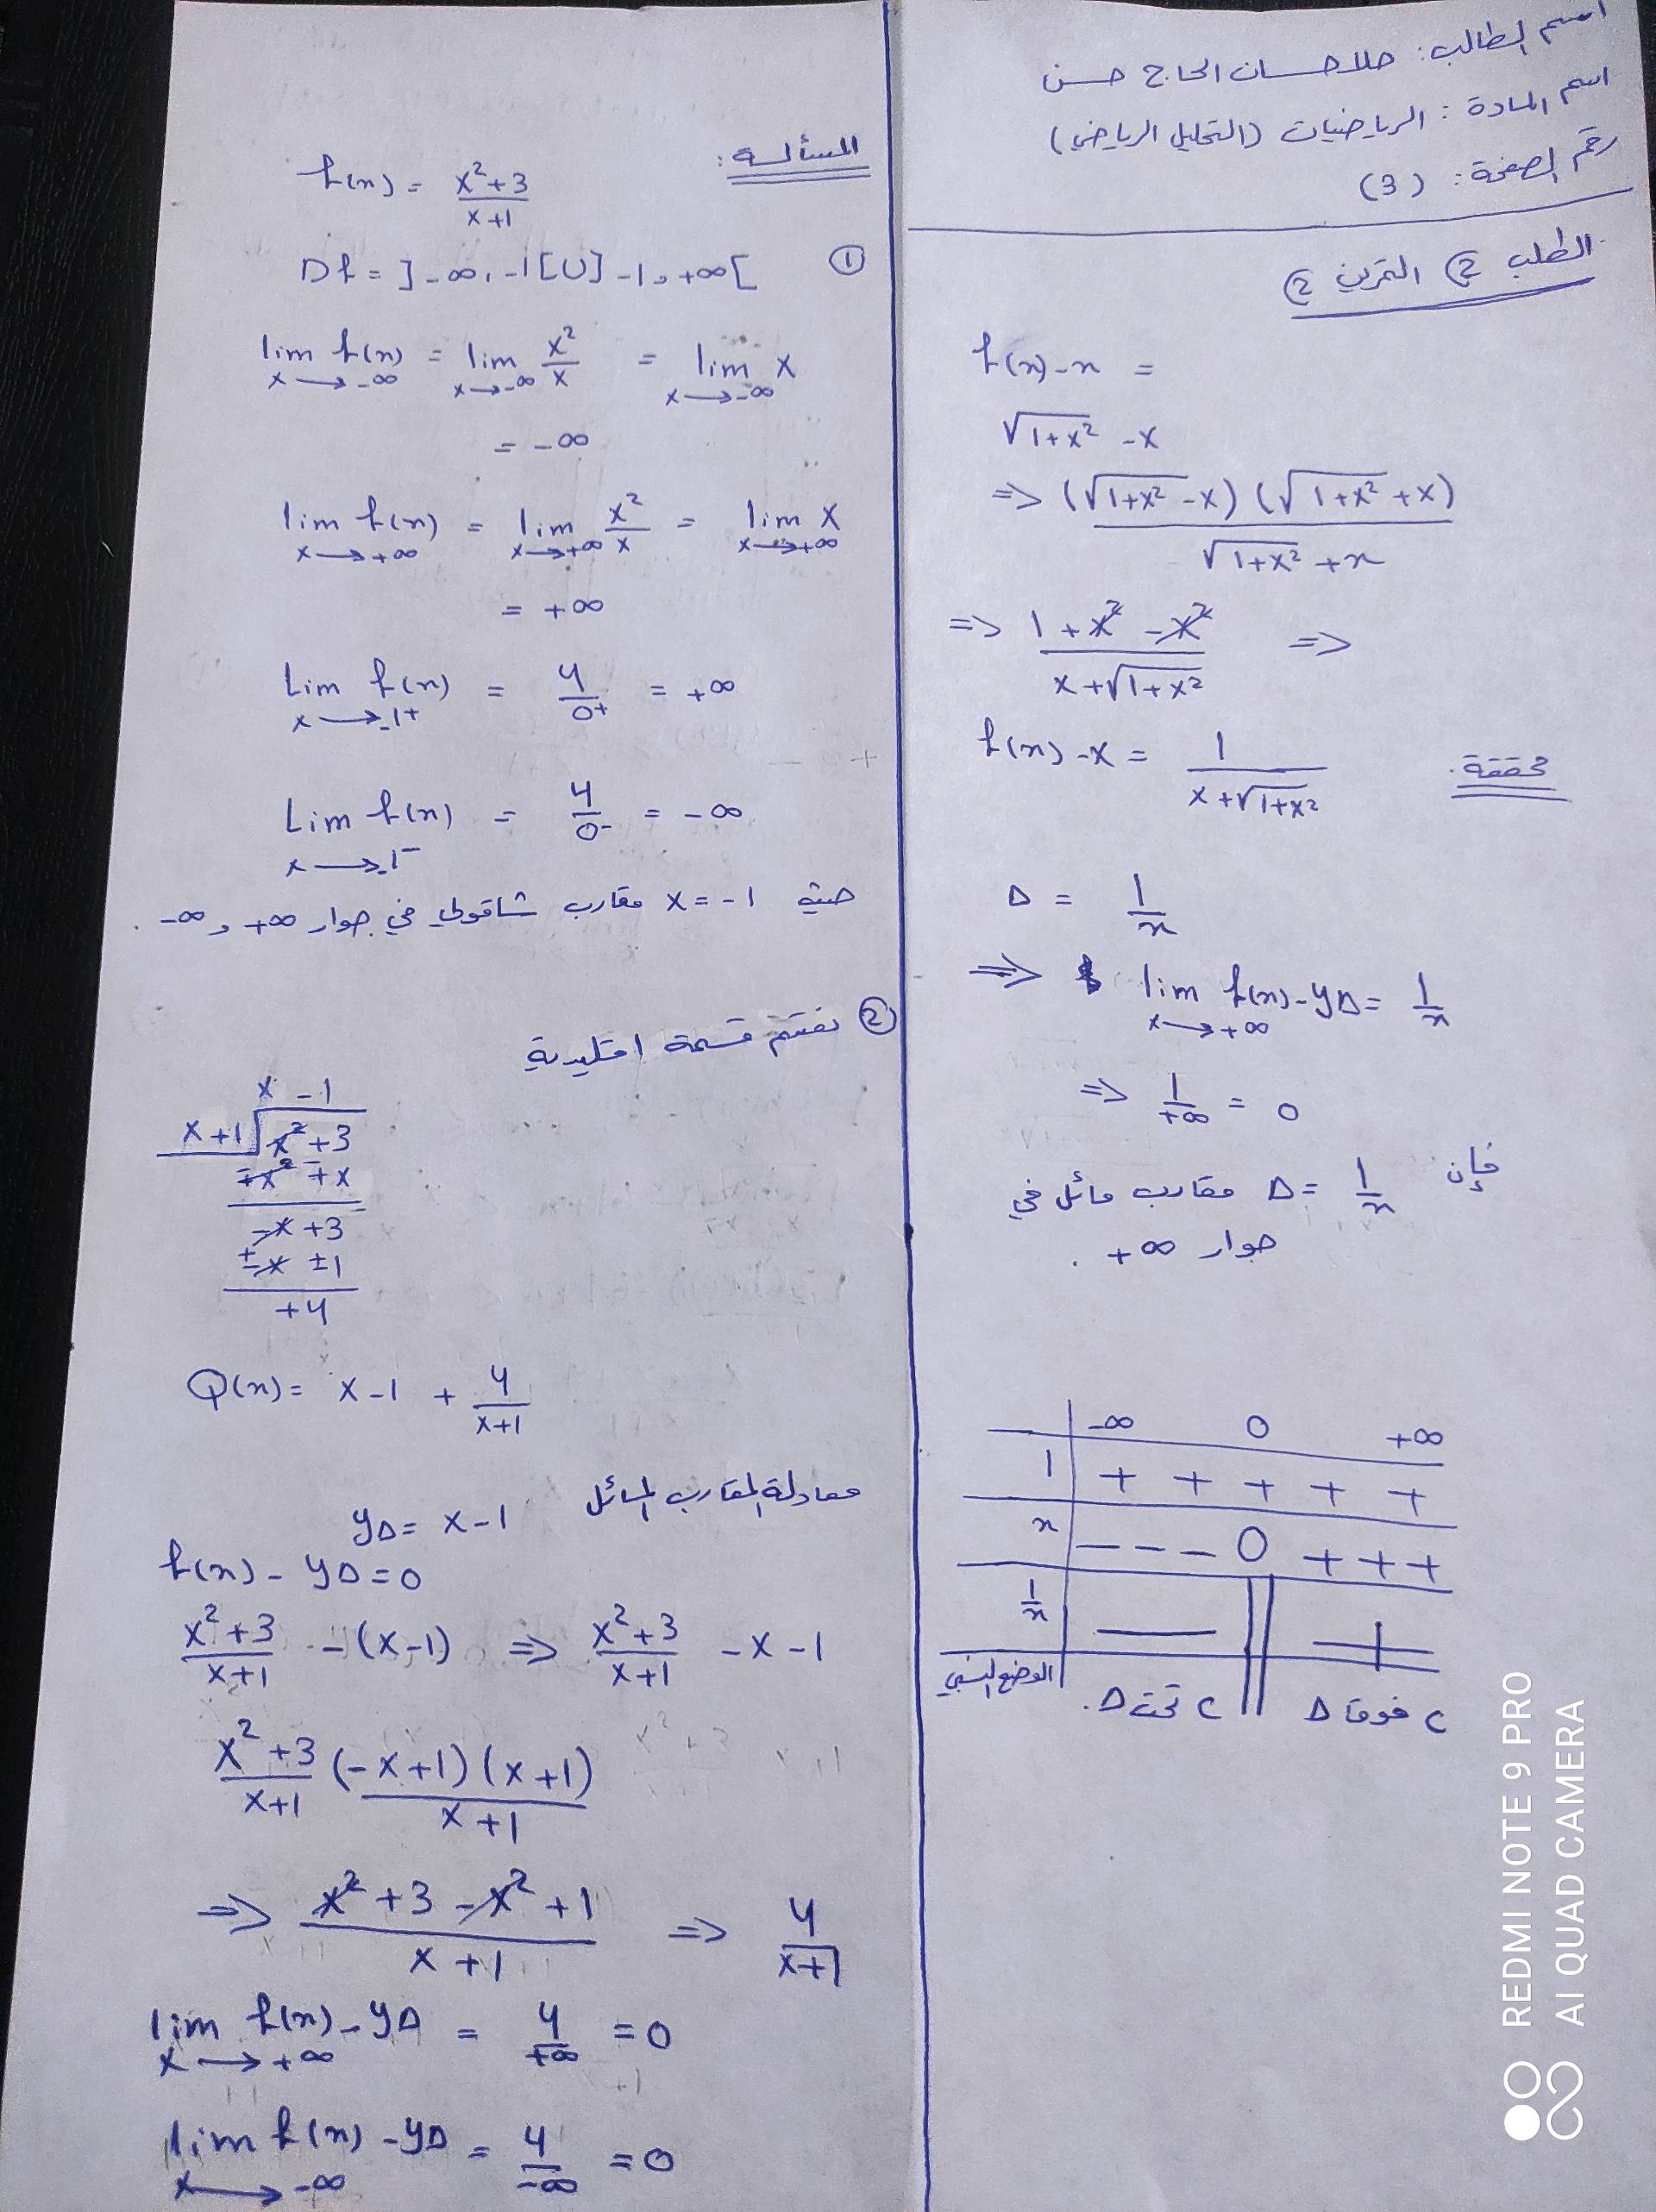 اسم الطالب: حلا حسان الحاج حسن
اسم المادة: الرياضيات (التحليل الرياضي)
رقم الصفحة: (3)
الطلب 2 التمرين 2
f(x)-x =
√1+x² -x
=> (√1+x² -x) (√1+x² +x)
√1+x² +x
=> 1+x²-x² =>
x+√1+x²
f(x)-x = 1 محققة.
x+√1+x²
Δ = 1/x
=> lim f(x)-yΔ = 1/x
x→+∞
=> 1/+∞ = 0
فإن Δ = 1/x مقارب مائل في
جوار +∞.
-∞ 0 +∞
1 + + + + +
x - - - 0 + + +
1/x - || +
الوضع النسبي C تحت Δ. || C فوق Δ
المسألة:
f(x) = x²+3
x+1
① Df = ]-∞, -1[U]-1, +∞[
lim f(x) = lim x²/x = lim x
x→-∞ x→-∞ x→-∞
= -∞
lim f(x) = lim x²/x = lim x
x→+∞ x→+∞ x→+∞
= +∞
Lim f(x) = 4/0+ = +∞
x→-1+
Lim f(x) = 4/0- = -∞
x→-1-
x = -1 مقارب شاقولي في جوار +∞ و -∞.
② قسمة اقليدية
x -1
x+1 x²+3
∓x² ∓x
-x+3
±x ±1
+4
Q(x) = x-1 + 4
x+1
معادلة المقارب المائل
yΔ = x-1
f(x) - yΔ = 0
x²+3 -(x-1) => x²+3 -x-1
x+1 x+1
x²+3 (-x+1)(x+1)
x+1 x+1
=> x²+3-x²+1 => 4
x+1 x+1
lim f(x)-yΔ = 4/+∞ = 0
x→+∞
lim f(x)-yΔ = 4/-∞ = 0
x→-∞
REDMI NOTE 9 PRO
AI QUAD CAMERA